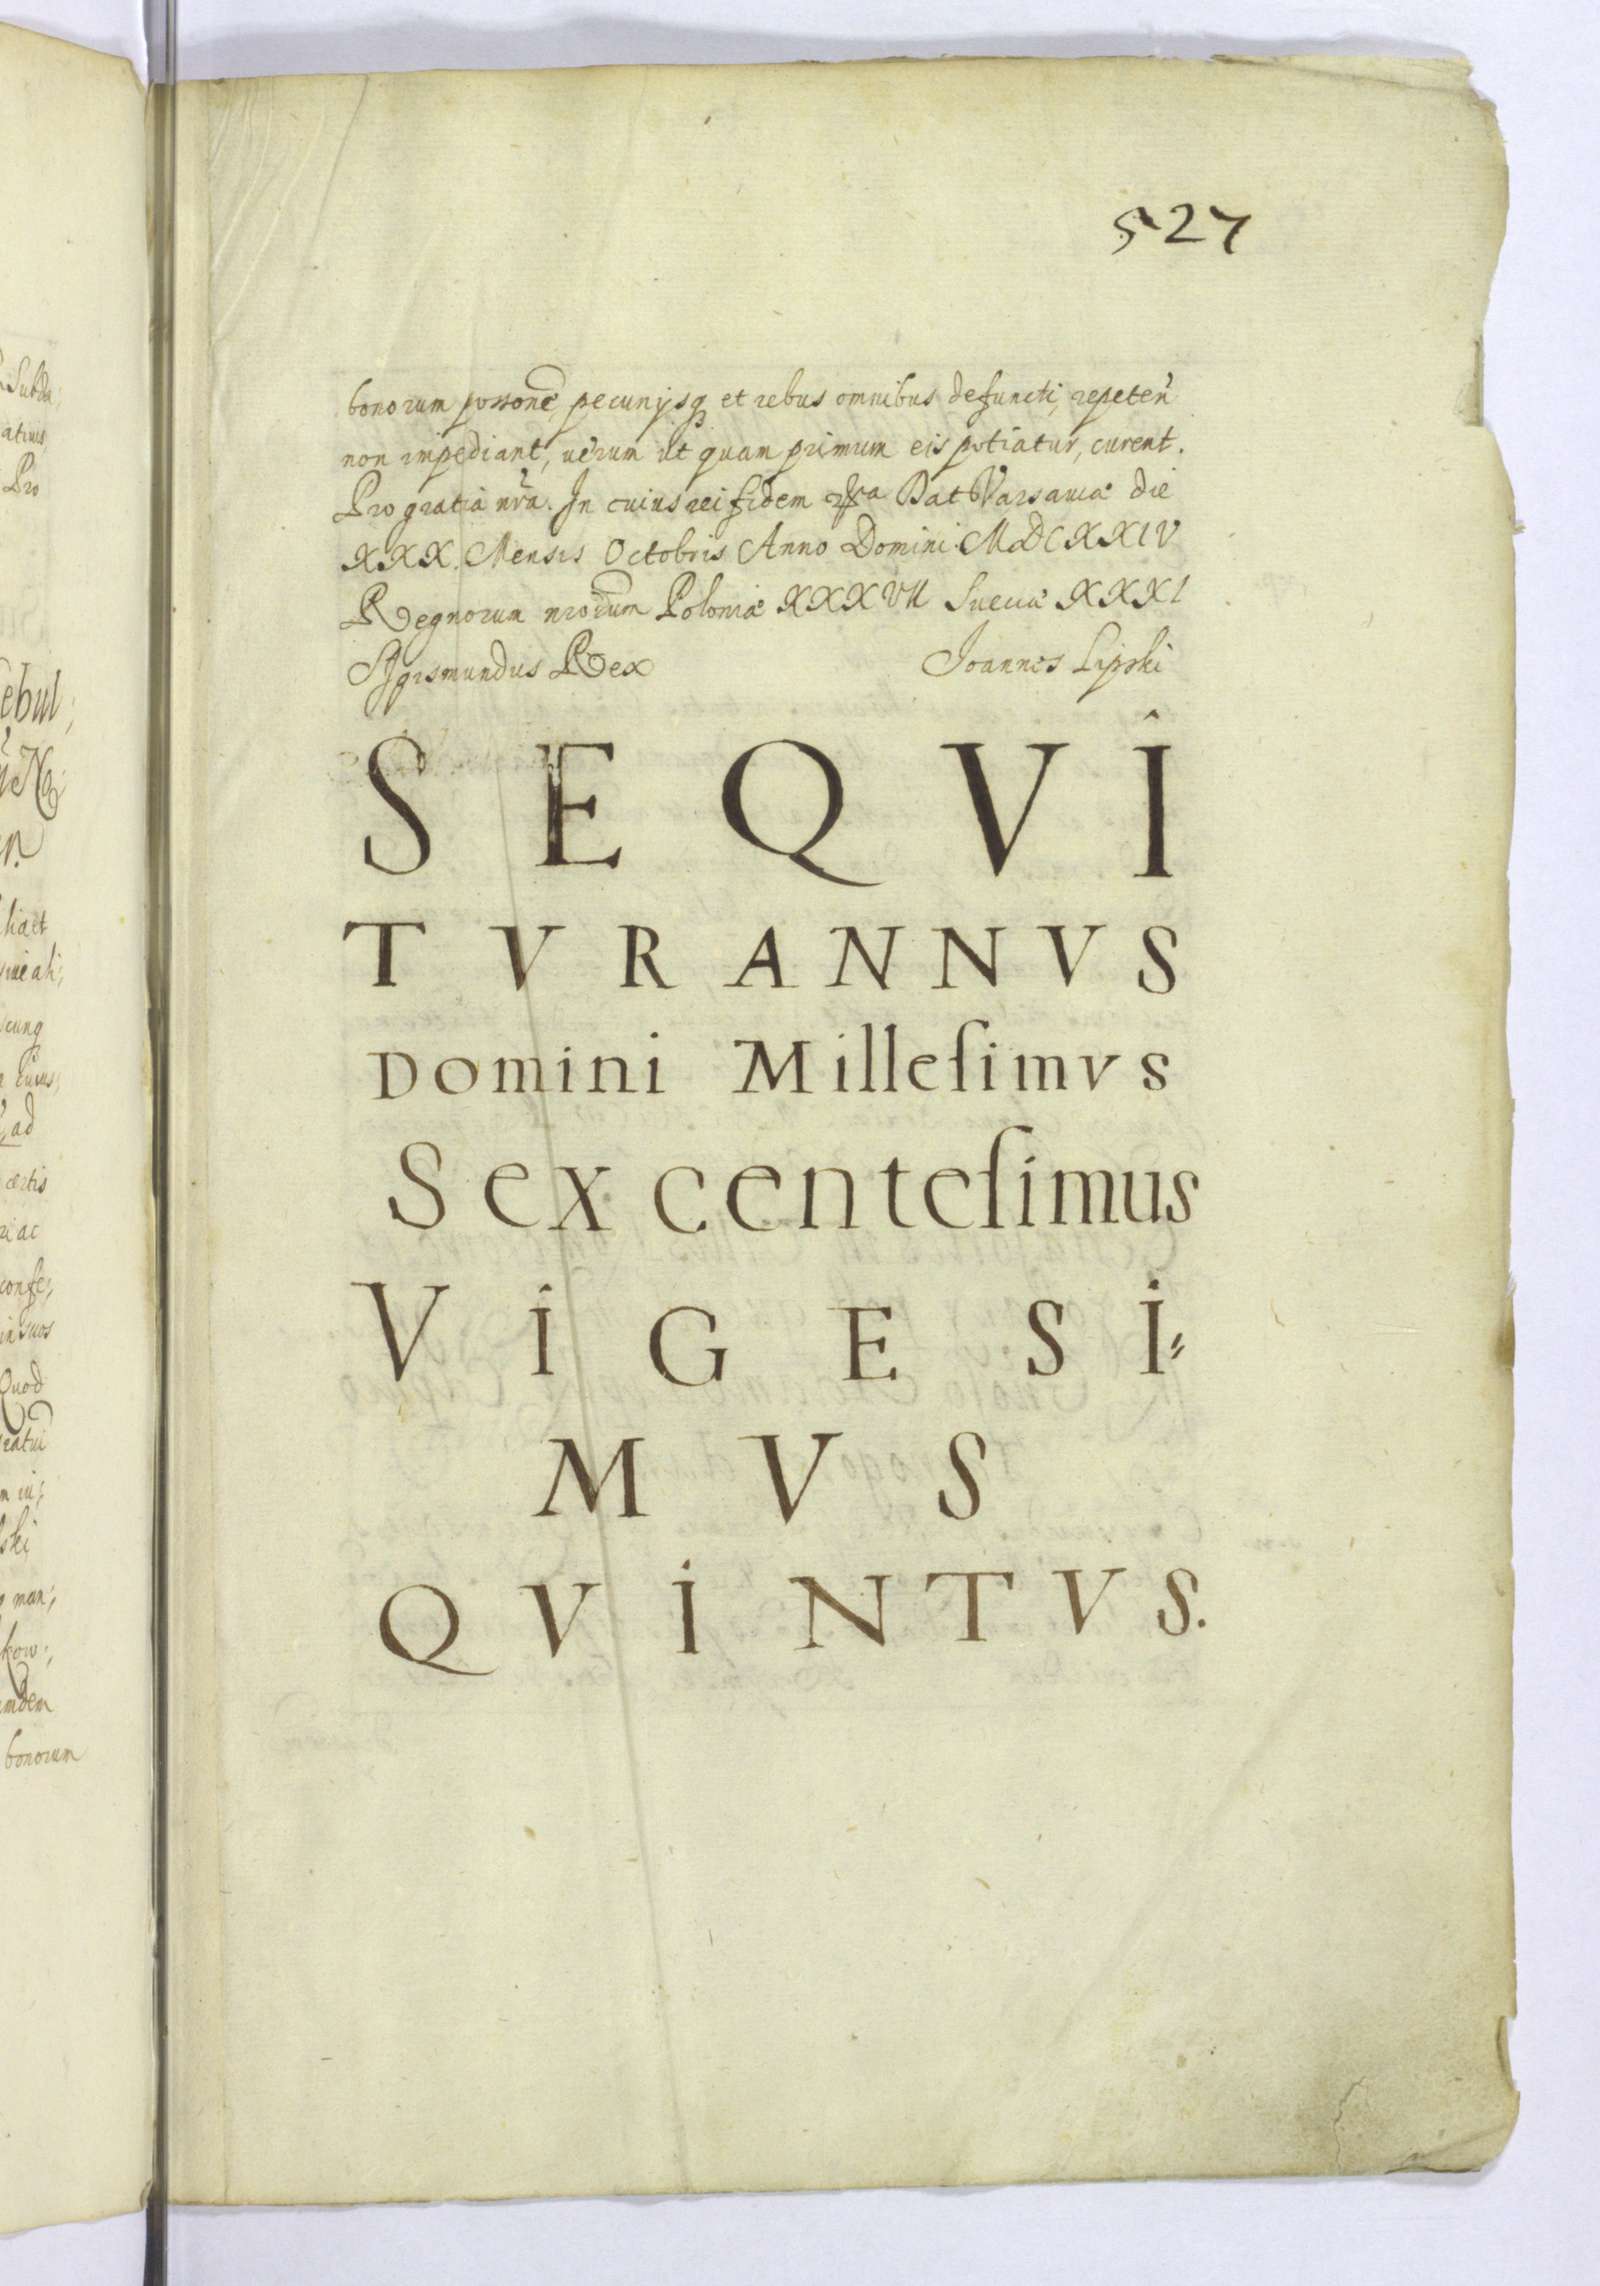 527
bonorum possone pecunijsq et rebus omnibus defuncti, repeten
non impediant, uerum ut quam primum eis potiatur, curent.
Pro gratia nra. In cuius rei fidem Dat Varsauiæ die
XXX. Mensis Octobris Anno Domini MDCXXIV
Regnorum nrorum Poloniæ XXXVII Sueciæ XXXI
Sigismundus Rex Joannes Lipski
SEQVI
TVRANNVS
Domini Milleſimvs
Sexcenteſimus
VIGESI=
MVS
QVINTVS.
Subda,
Pro
ebul,
haet
cunq
ad
ri ac
confe,
in suos
Quod
ratui
ski
man,
kow,
emdem
bonorum